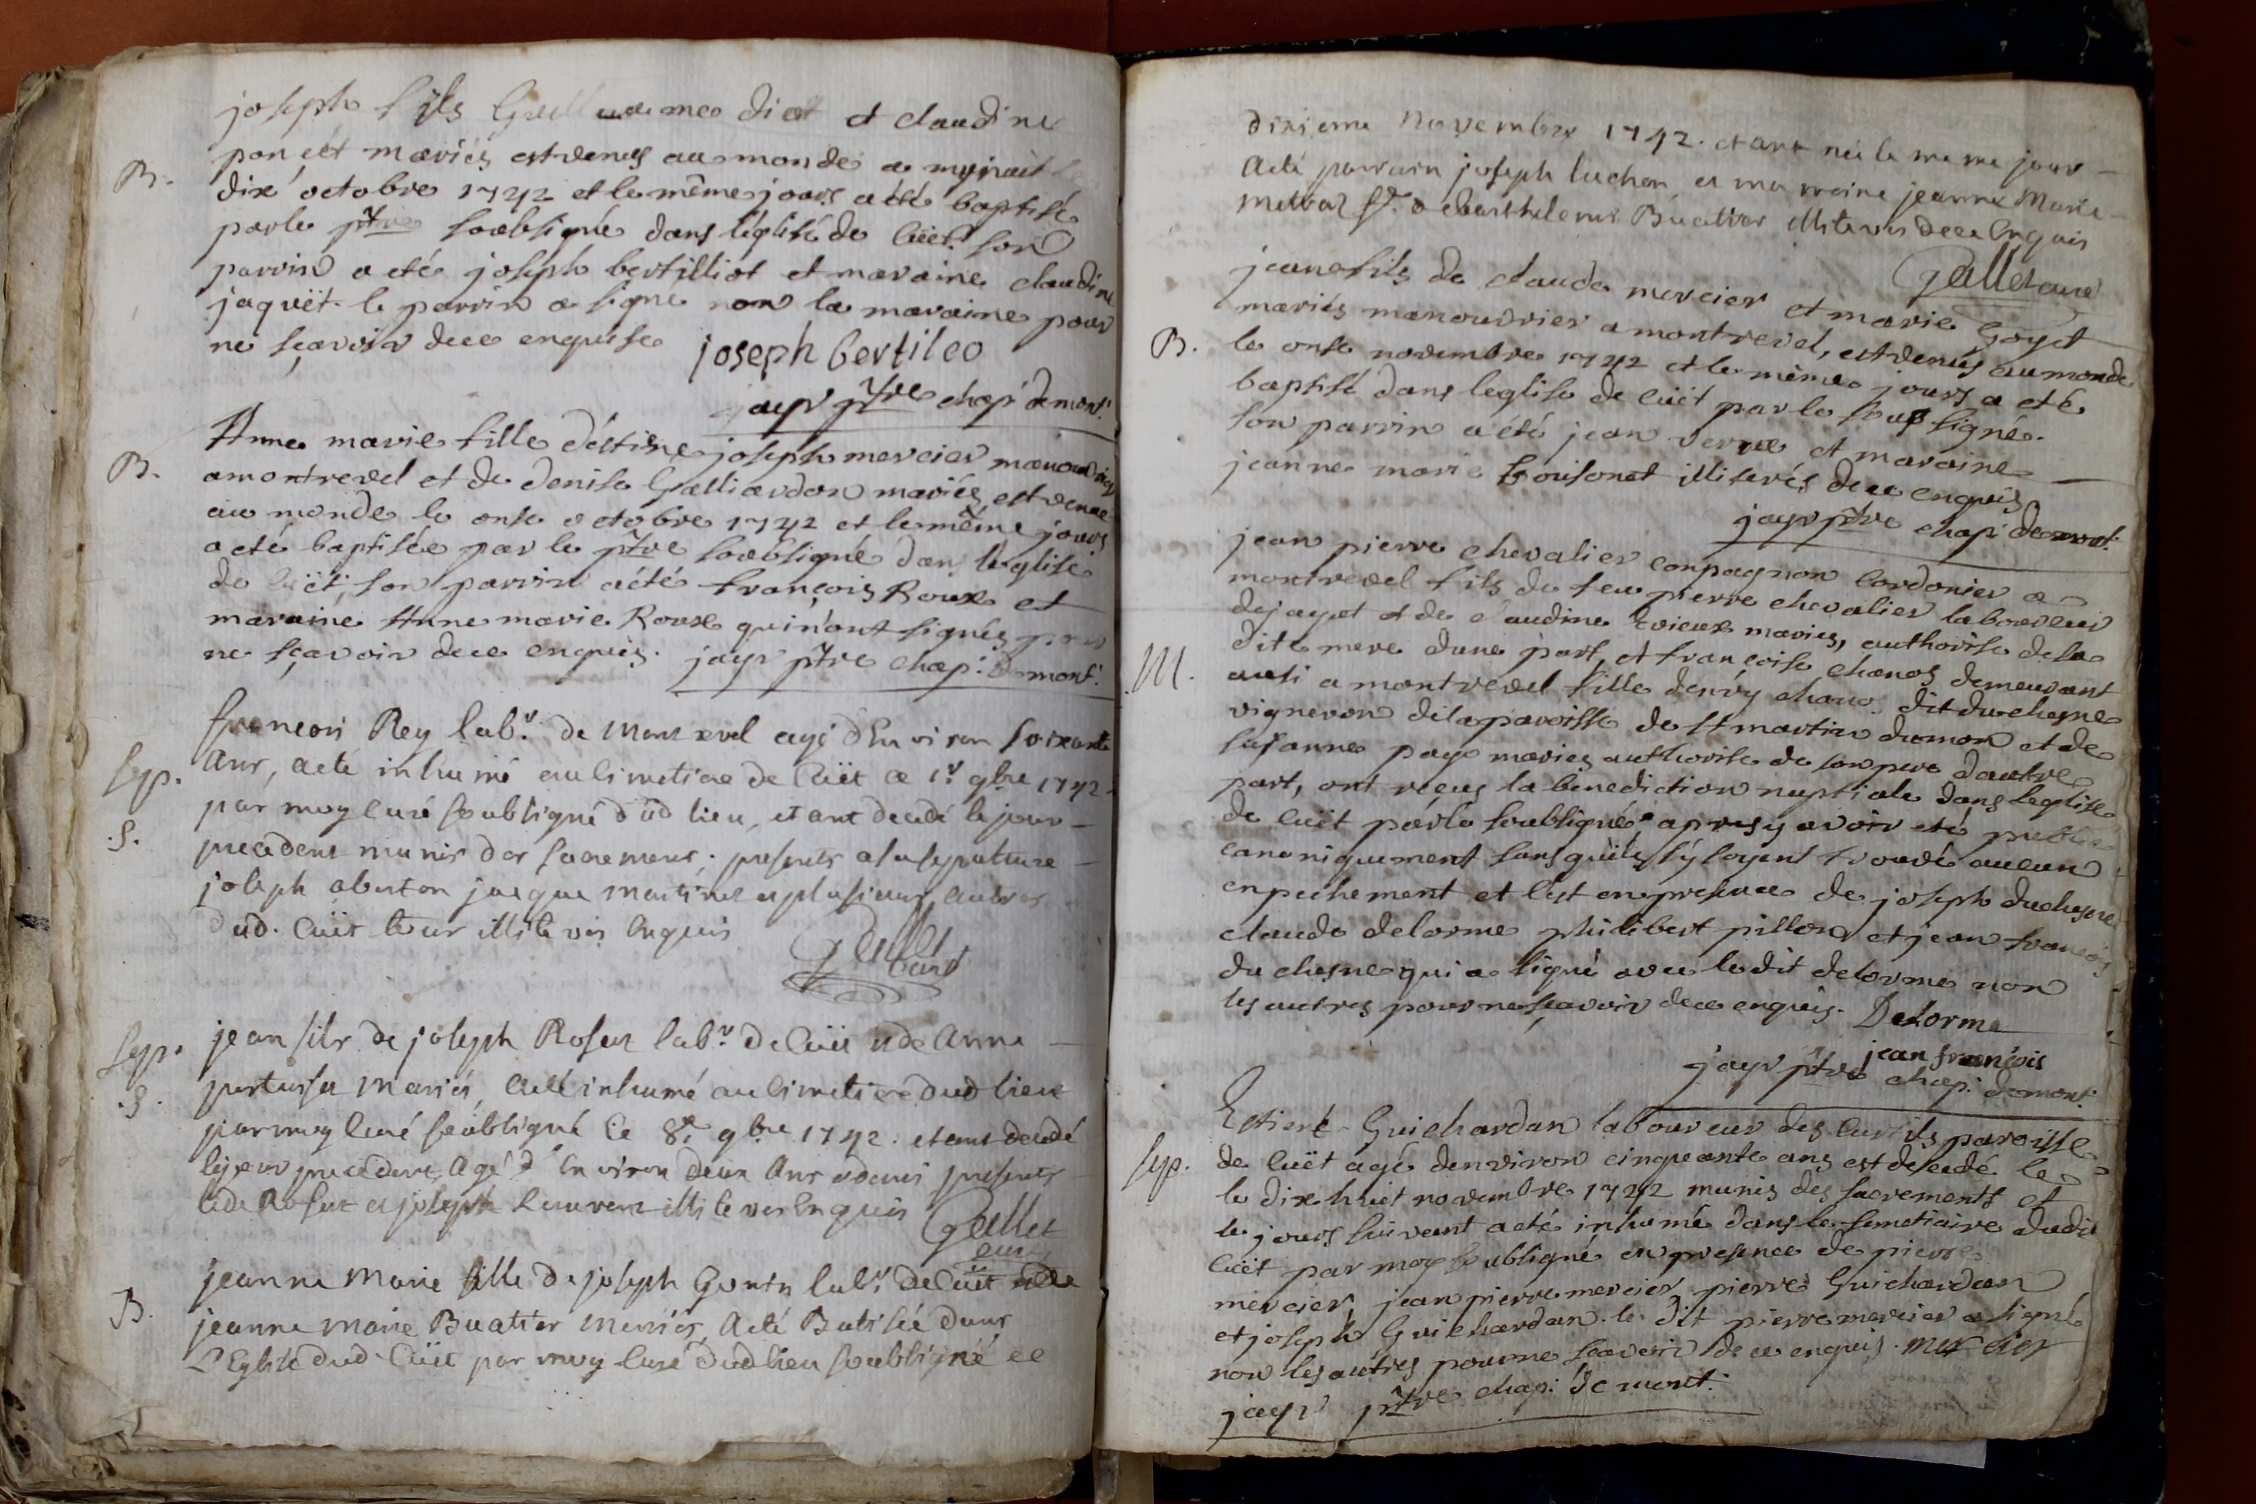 joseph fils Guillaume diat et claudine
ponçét mariés est venus au monde a mynuit le
B. dixe octobre 1742 et le même jours a été baptisé
par le ptre soubsigné dans léglise de Cüet son
parrin a eté joseph bertilliot et maraine claudine
jaquët le parrin a signe non la maraine pour
ne sçavoir de ce enquise joseph bertileo
jayr ptre chap: de mont:
Anne marie fille déstiene joseph mercier manouvrier
B. a montrevel et de denise Galliardon mariés est venue
au monde le onse octobre 1742 et le même jours
a eté baptisée par le ptre soubsigné dans léglise
de Cüet, son parrin a été françois Roux et
maraine Anne marie Roux qui n'ont signés pour
ne sçavoir de ce enquis. jayr ptre chap: de mont:
françois Rey labr. de Montrevel agé d'Environ soixante
Sep. Ans, a eté inhumé au cimetiere de Cüet ce 1r. 9bre 1742
par moy curé soubsigné dud lieu, etant decedé le jour
S. precedent munis des sacremens; presents a la sepulture
joseph jacque et plusieurs autres
dud. Cüet illiterés Enquis
Gallet curé
Sep. jean fils de joseph Rosset labr. de Cüet et de Anne
S. mariés, a eté inhumé au cimetiere dud lieu
par moy curé soubsigné ce 8e. 9bre 1742. etant decedé
le jour precedent, Agé d'Environ deux Ans et demi presents
led Rosset et joseph illiterés Enquis
Gallet
curé
jeanne Marie fille de joseph labr. de Cüet et de
B. jeanne Marie Buatier Mariés, A eté Batisée dans
L'Eglise dud Cüet par moy curé dud lieu soubsigné ce
dixieme Novembre 1742. etant née le meme jour
A eté parrain joseph luchon et marraine jeanne Marie
Buatier illiterés de ce Enquis
Gallet curé
jean fils de claude mercier et marie Goyet
mariés manouvrier a montrevel, est venus au monde
B. le onse novembre 1742 et le même jours a eté
baptisé dans leglise de Cüet par le soussigné.
son parrin a été jean verne et maraine
jeanne marie illiterés de ce enquis
jayr ptre chap: de mont:
jean pierre chevalier conpagnon cordonier a
montrevel fils de feu pierre chevalier laboureur
dejayat et de claudine mariés, authorisé de sa
M. dite mere d'une part, et françoise chanos demeurant
aussi a montrevel fille denry chano dit duchesne
vigneron de la paroisse de st martin dumon et de
susanne page mariés authorisé de son pere dautre
part, ont reçeus la benediction nuptiale dans leglise
de Cüet par le soubsigné apres y avoir eté publiés
canoniquement sans qu'ils s'y soyent trouvé aucun
enpechement et c'est en presence de joseph duchesne
claude delorme philibert pillon et jean françois
du chesne qui a signé avec le dit delorme non
les autres pour ne sçavoir de ce enquis. Delorme
jean françois
jayr ptre chap: de mont:
Estiene Guichardan laboureur des curtils paroisse
Sep. de Cüet agé d'environ cinquante ans est decedé le
le dixe huit novembre 1742 munis des sacrements et
le jours suivant a eté inhumé dans le semetiaire dudit
Cüet par moy soubsigné en presence de pierre
mercier, jean pierre mercier pierre Guichardan
et joseph Guichardan. le dit pierre mercier a signé
non les autres pour ne sçavoir de ce enquis. mercier
jayr ptre chap: de mont: